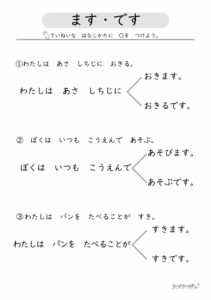 ます・です
ていねいな　はなしかたに　〇を　つけよう。
①わたしは　あさ　しちじに　おきる。
おきます。
わたしは　あさ　しちじに
おきるです。
②　ぼくは　いつも　こうえんで　あそぶ。
あそびます。
ぼくは　いつも　こうえんで
あそぶです。
③わたしは　パンを　たべることが　すき。
すきます。
わたしは　パンを　たべることが
すきです。